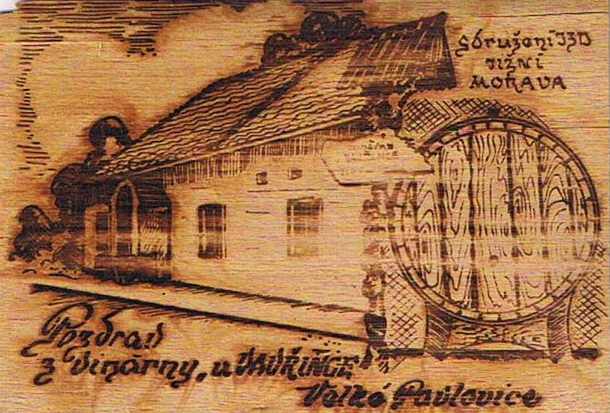 Sdružení JZD
JIŽNÍ
MORAVA
Pozdrav
z vinárny „u
Velké Pavlovice